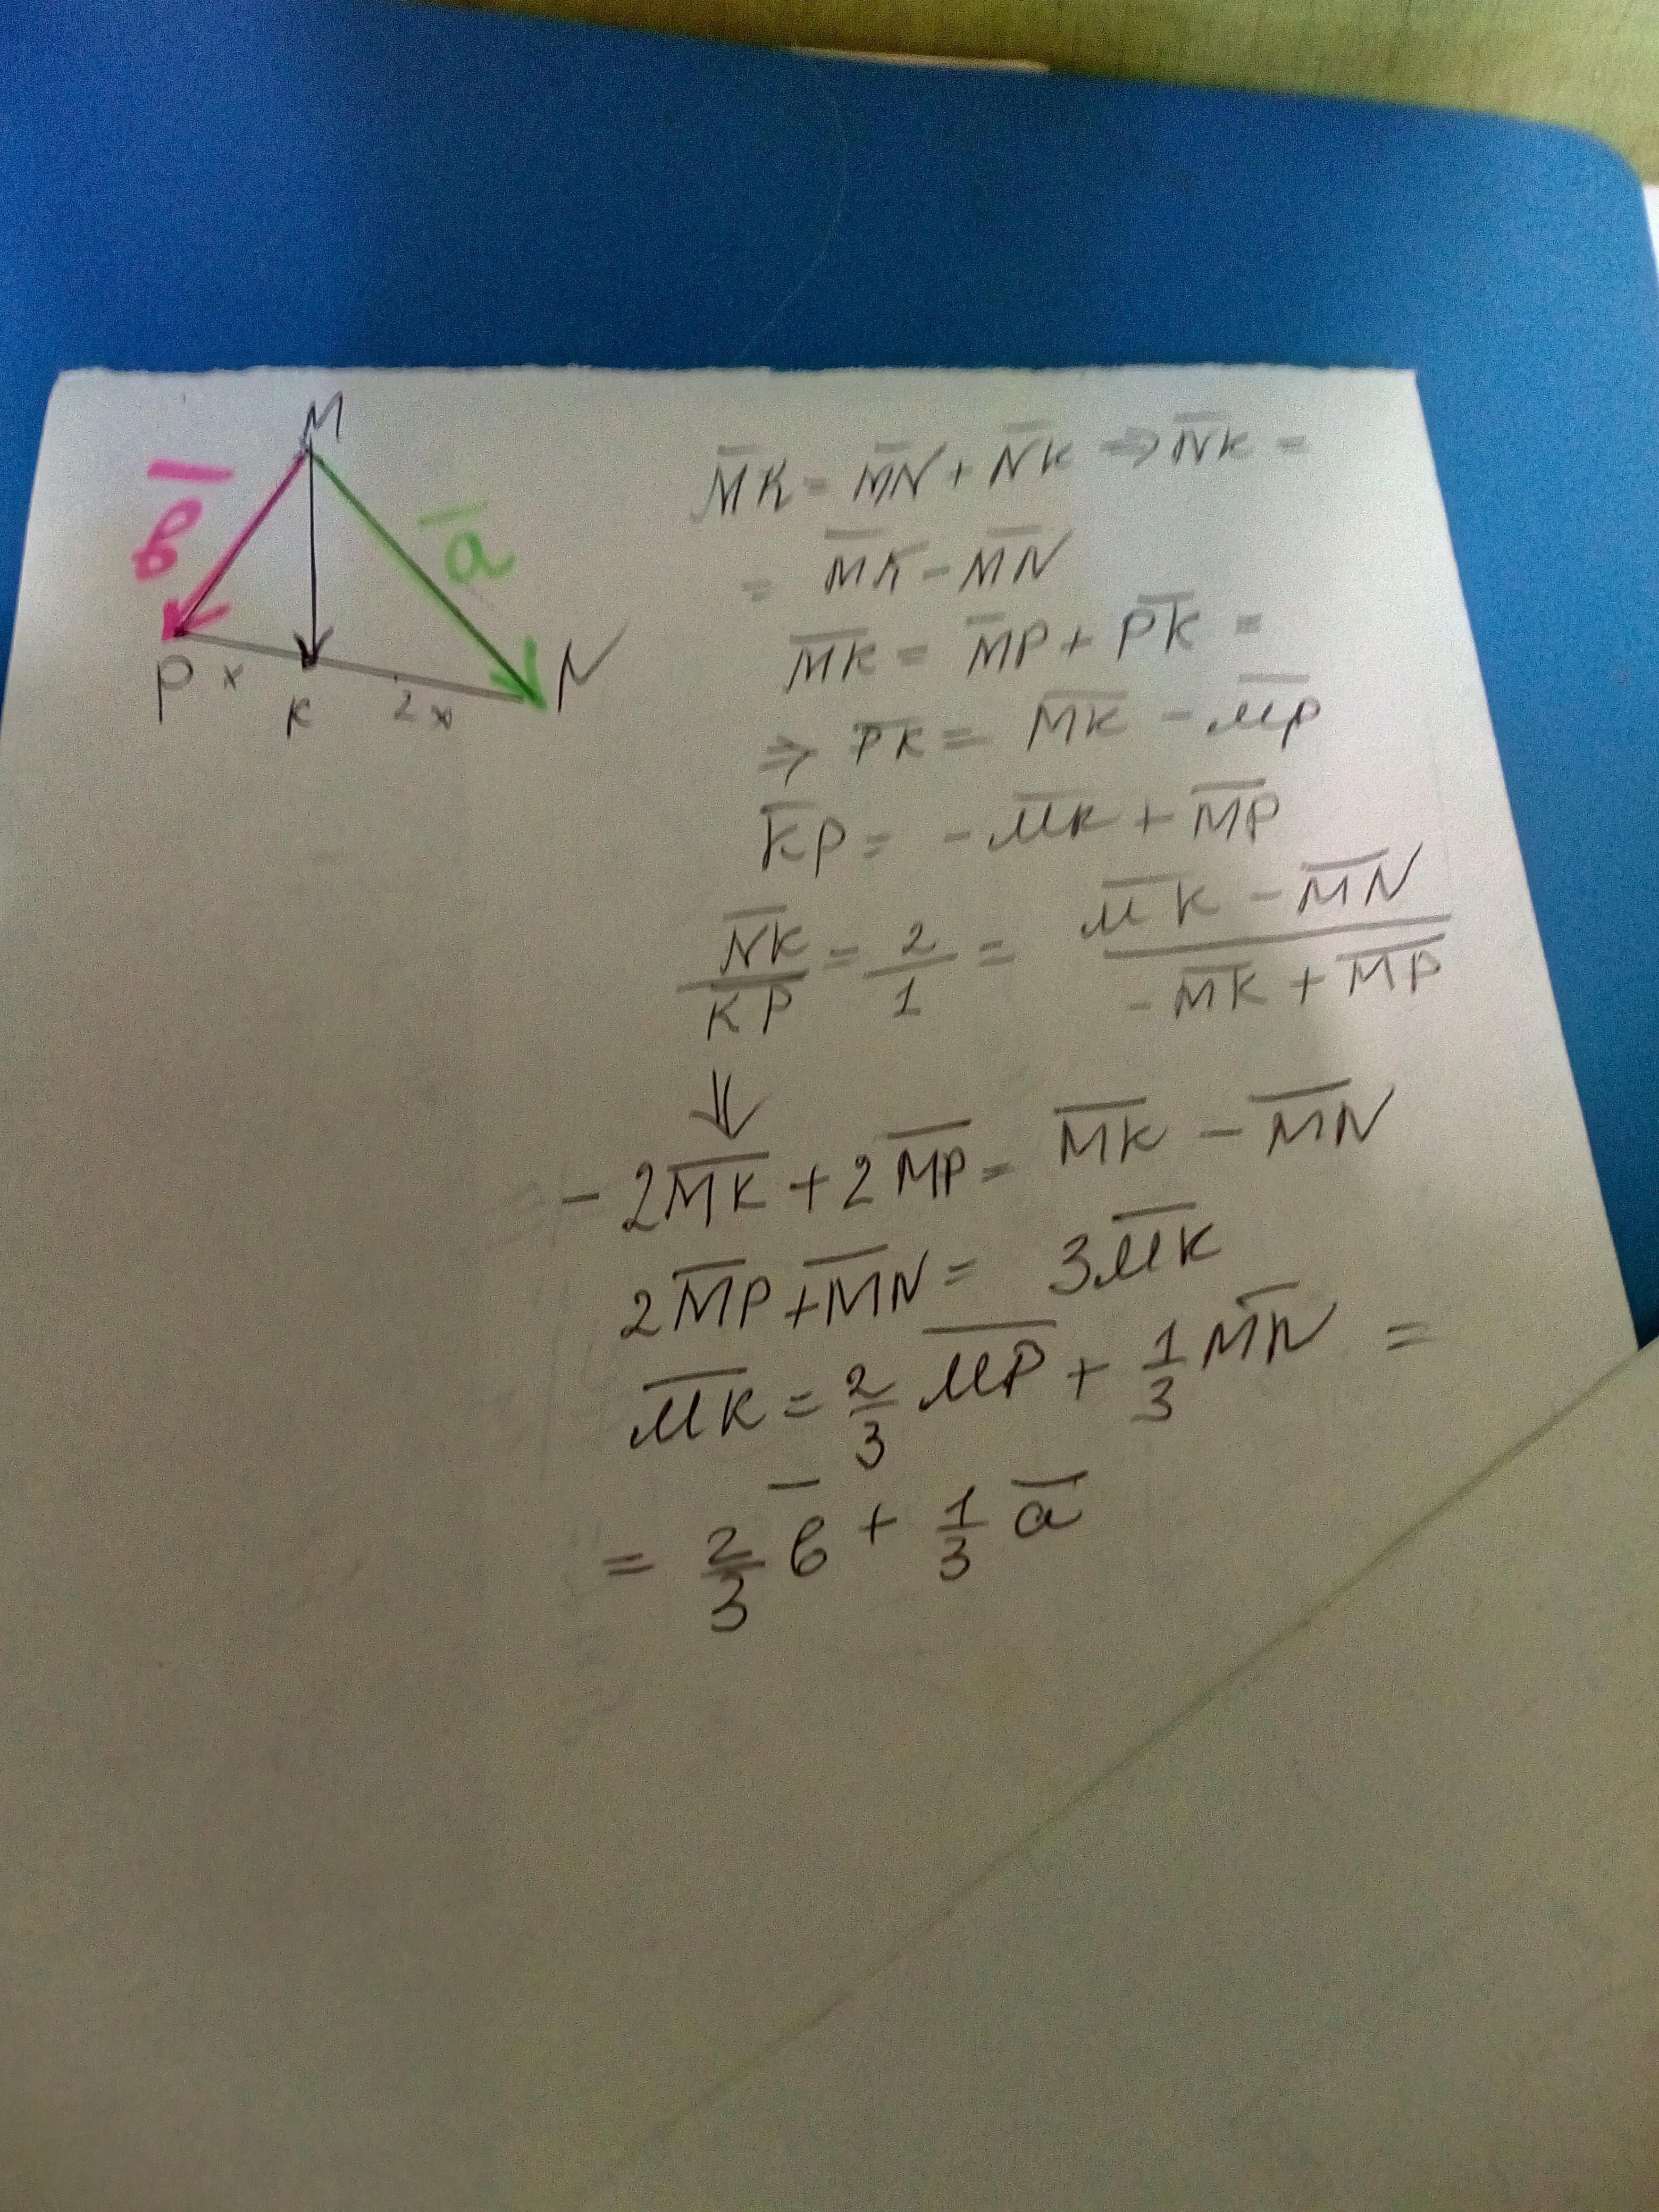 M
b̅
a̅
P x K 2x N
M̅K̅ = M̅N̅ + N̅K̅ ⇒ N̅K̅ =
= M̅K̅ - M̅N̅
M̅K̅ = M̅P̅ + P̅K̅ =
⇒ P̅K̅ = M̅K̅ - M̅P̅
K̅P̅ = - M̅K̅ + M̅P̅
N̅K̅/K̅P̅ = 2/1 = (M̅K̅ - M̅N̅)/(-M̅K̅ + M̅P̅)
⇓
- 2M̅K̅ + 2M̅P̅ = M̅K̅ - M̅N̅
2M̅P̅ + M̅N̅ = 3M̅K̅
M̅K̅ = 2/3 M̅P̅ + 1/3 M̅N̅ =
= 2/3 b̅ + 1/3 a̅